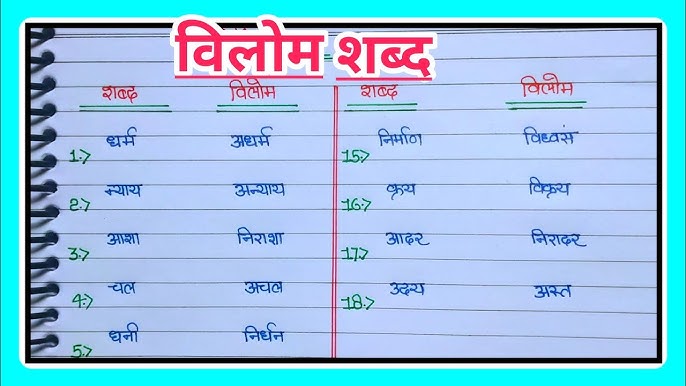 विलोम शब्द
शब्द विलोम शब्द विलोम
1.> धर्म अधर्म 15.> निर्माण विध्वसं
2.> न्याय अन्याय 16.> क्रय विक्रय
3.> आशा निराशा 17.> आदर निरादर
4.> चल अचल 18.> उदय अस्त
5.> धनी निर्धन